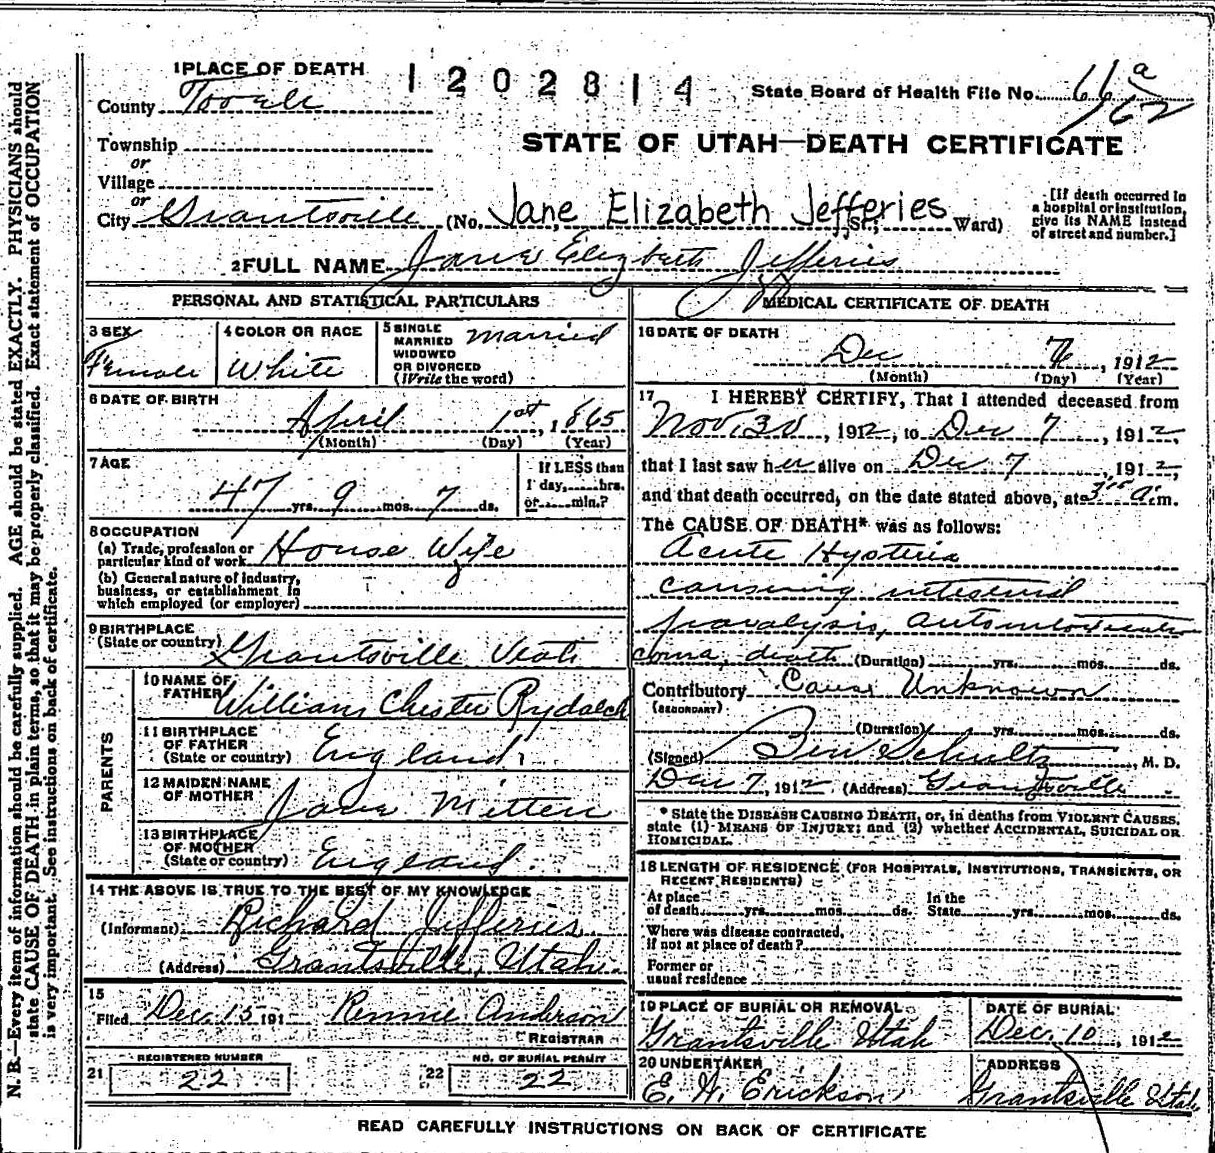 1 PLACE OF DEATH
1202814
State Board of Health File No. 66 a
62
County Tooele
STATE OF UTAH—DEATH CERTIFICATE
Township
or
Village
or
City Grantsville (No. Jane Elizabeth Jefferies St.; Ward)
[If death occurred in
a hospital or institution,
give its NAME instead
of street and number.]
2 FULL NAME Jane Elizabeth Jefferies
PERSONAL AND STATISTICAL PARTICULARS
3 SEX
Female
4 COLOR OR RACE
White
5 SINGLE
MARRIED
WIDOWED
OR DIVORCED
(Write the word)
Married
6 DATE OF BIRTH
April 1st, 1865
(Month) (Day) (Year)
7 AGE
47 yrs. 9 mos. 7 ds.
If LESS than
1 day, hrs.
or min.?
8 OCCUPATION
(a) Trade, profession or
particular kind of work House Wife
(b) General nature of industry,
business, or establishment in
which employed (or employer)
9 BIRTHPLACE
(State or country) Grantsville Utah
PARENTS
10 NAME OF
FATHER William Chester Rydalch
11 BIRTHPLACE
OF FATHER
(State or country) England
12 MAIDEN NAME
OF MOTHER Jane Mitten
13 BIRTHPLACE
OF MOTHER
(State or country) England
14 THE ABOVE IS TRUE TO THE BEST OF MY KNOWLEDGE
(Informant) Richard Jefferies
(Address) Grantsville, Utah
15
Filed Dec. 15 191 Rennie Anderson
REGISTRAR
21 REGISTERED NUMBER
22
22 NO. OF BURIAL PERMIT
22
MEDICAL CERTIFICATE OF DEATH
16 DATE OF DEATH
Dec 7, 1912
(Month) (Day) (Year)
17 I HEREBY CERTIFY, That I attended deceased from
Nov. 30, 1912, to Dec 7, 1912,
that I last saw her alive on Dec 7, 1912,
and that death occurred, on the date stated above, at 3 a.m.
The CAUSE OF DEATH* was as follows:
Acute Hysteria
causing intestinal
paralysis, Autointoxication
coma, death (Duration) yrs. mos. ds.
Contributory Cause Unknown
(SECONDARY)
(Duration) yrs. mos. ds.
(Signed) Ben Schultz, M. D.
Dec 7, 1912 (Address) Grantsville
* State the DISEASE CAUSING DEATH, or, in deaths from VIOLENT CAUSES,
state (1) MEANS OF INJURY; and (2) whether ACCIDENTAL, SUICIDAL OR
HOMICIDAL.
18 LENGTH OF RESIDENCE (FOR HOSPITALS, INSTITUTIONS, TRANSIENTS, OR
RECENT RESIDENTS)
At place
of death yrs. mos. ds.
In the
State yrs. mos. ds.
Where was disease contracted,
if not at place of death?
Former or
usual residence
19 PLACE OF BURIAL OR REMOVAL
Grantsville Utah
DATE OF BURIAL
Dec. 10, 1912
20 UNDERTAKER
E. H. Erickson
ADDRESS
Grantsville Utah
READ CAREFULLY INSTRUCTIONS ON BACK OF CERTIFICATE
N. B.—Every item of information should be carefully supplied. AGE should be stated EXACTLY. PHYSICIANS should
state CAUSE OF DEATH in plain terms, so that it may be properly classified. Exact statement of OCCUPATION
is very important. See instructions on back of certificate.